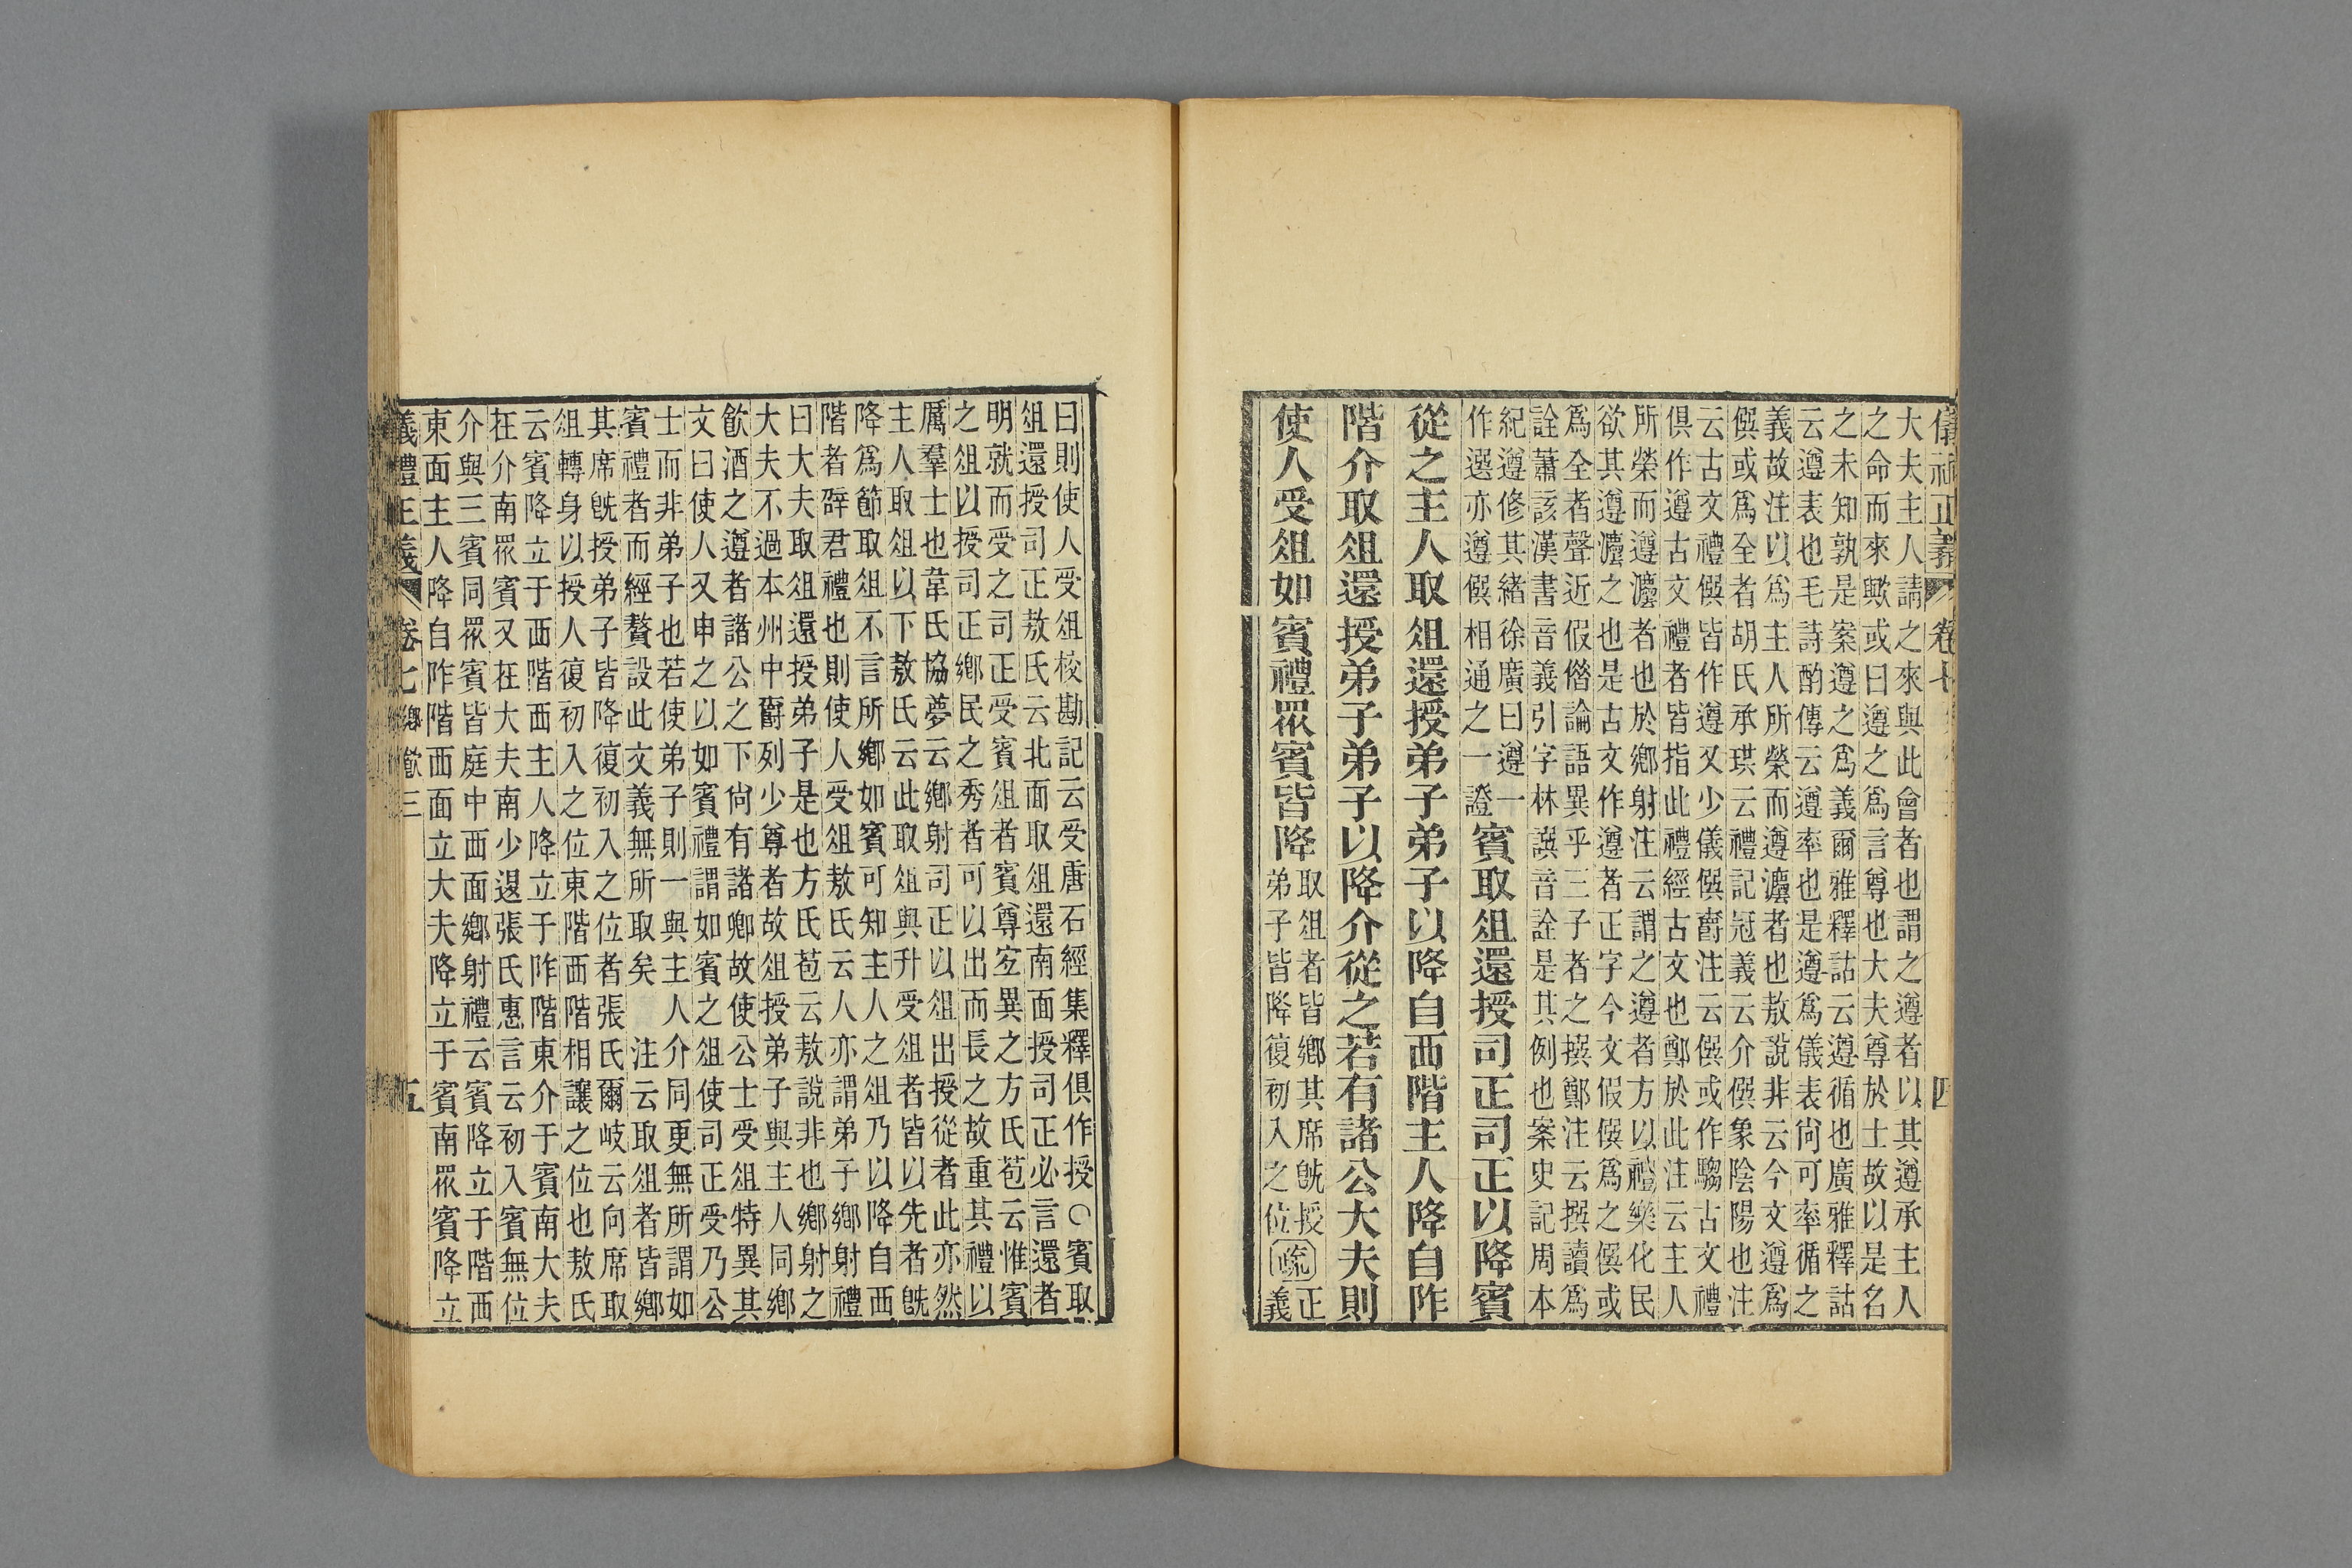 大夫主人請之來與此會者也謂之遵者以其遵承主人
之命而來歟或曰遵之爲言尊也大夫尊於士故以是名
之未知孰是案遵之爲義爾雅釋詁云遵循也廣雅釋詁
云遵表也毛詩酌傳云遵率也是遵爲儀表尙可率循之
義故注以爲主人所榮而遵灋者也敖說非云今文遵爲
僎或爲全者胡氏承珙云禮記冠義云介僎象陰陽也注
云古文禮僎皆作遵又少儀僎爵注云僎或作騶古文禮
俱作遵古文禮者皆指此禮經古文也鄭於此注云主人
所榮而遵灋者也於鄉射注云謂之遵者方以禮樂化民
欲其遵灋之也是古文作遵者正字今文假僎爲之僎或
爲全者聲近假借論語異乎三子者之撰鄭注云撰讀爲
詮蕭該漢書音義引字林譔音詮是其例也案史記周本
紀遵修其緒徐廣曰遵一
作選亦遵僎相通之一證
賓取俎還授司正司正以降賓
從之主人取俎還授弟子弟子以降自西階主人降自阼
階介取俎還授弟子弟子以降介從之若有諸公大夫則
使人受俎如賓禮眾賓皆降
取俎者皆鄉其席旣授
弟子皆降復初入之位
疏
正
義
曰則使人受俎校勘記云受唐石經集釋俱作授○賓取
俎還授司正敖氏云北面取俎還南面授司正必言還者
明就而受之司正受賓俎者賓尊宐異之方氏苞云惟賓
之俎以授司正鄉民之秀者可以出而長之故重其禮以
厲羣士也韋氏協夢云鄉射司正以俎出授從者此亦然
主人取俎以下敖氏云此取俎與升受俎者皆以先者旣
降爲節取俎不言所鄉如賓可知主人之俎乃以降自西
階者辟君禮也則使人受俎敖氏云人亦謂弟子鄉射禮
曰大夫取俎還授弟子是也方氏苞云敖說非也鄉射之
大夫不過本州中爵列少尊者故俎授弟子與主人同鄉
飮酒之遵者諸公之下尙有諸卿故使公士受俎特異其
文曰使人又申之以如賓禮謂如賓之俎使司正受乃公
士而非弟子也若使弟子則一與主人介同更無所謂如
賓禮者而經贅設此文義無所取矣 注云取俎者皆鄉
其席旣授弟子皆降復初入之位者張氏爾岐云向席取
俎轉身以授人復初入之位東階西階相讓之位也敖氏
云賓降立于西階西主人降立于阼階東介于賓南大夫
在介南眾賓又在大夫南少退張氏惠言云初入賓無位
介與三賓同眾賓皆庭中西面鄉射禮云賓降立于階西
東面主人降自阼階西面立大夫降立于賓南眾賓降立
義禮正義 卷七鄉飮三 五